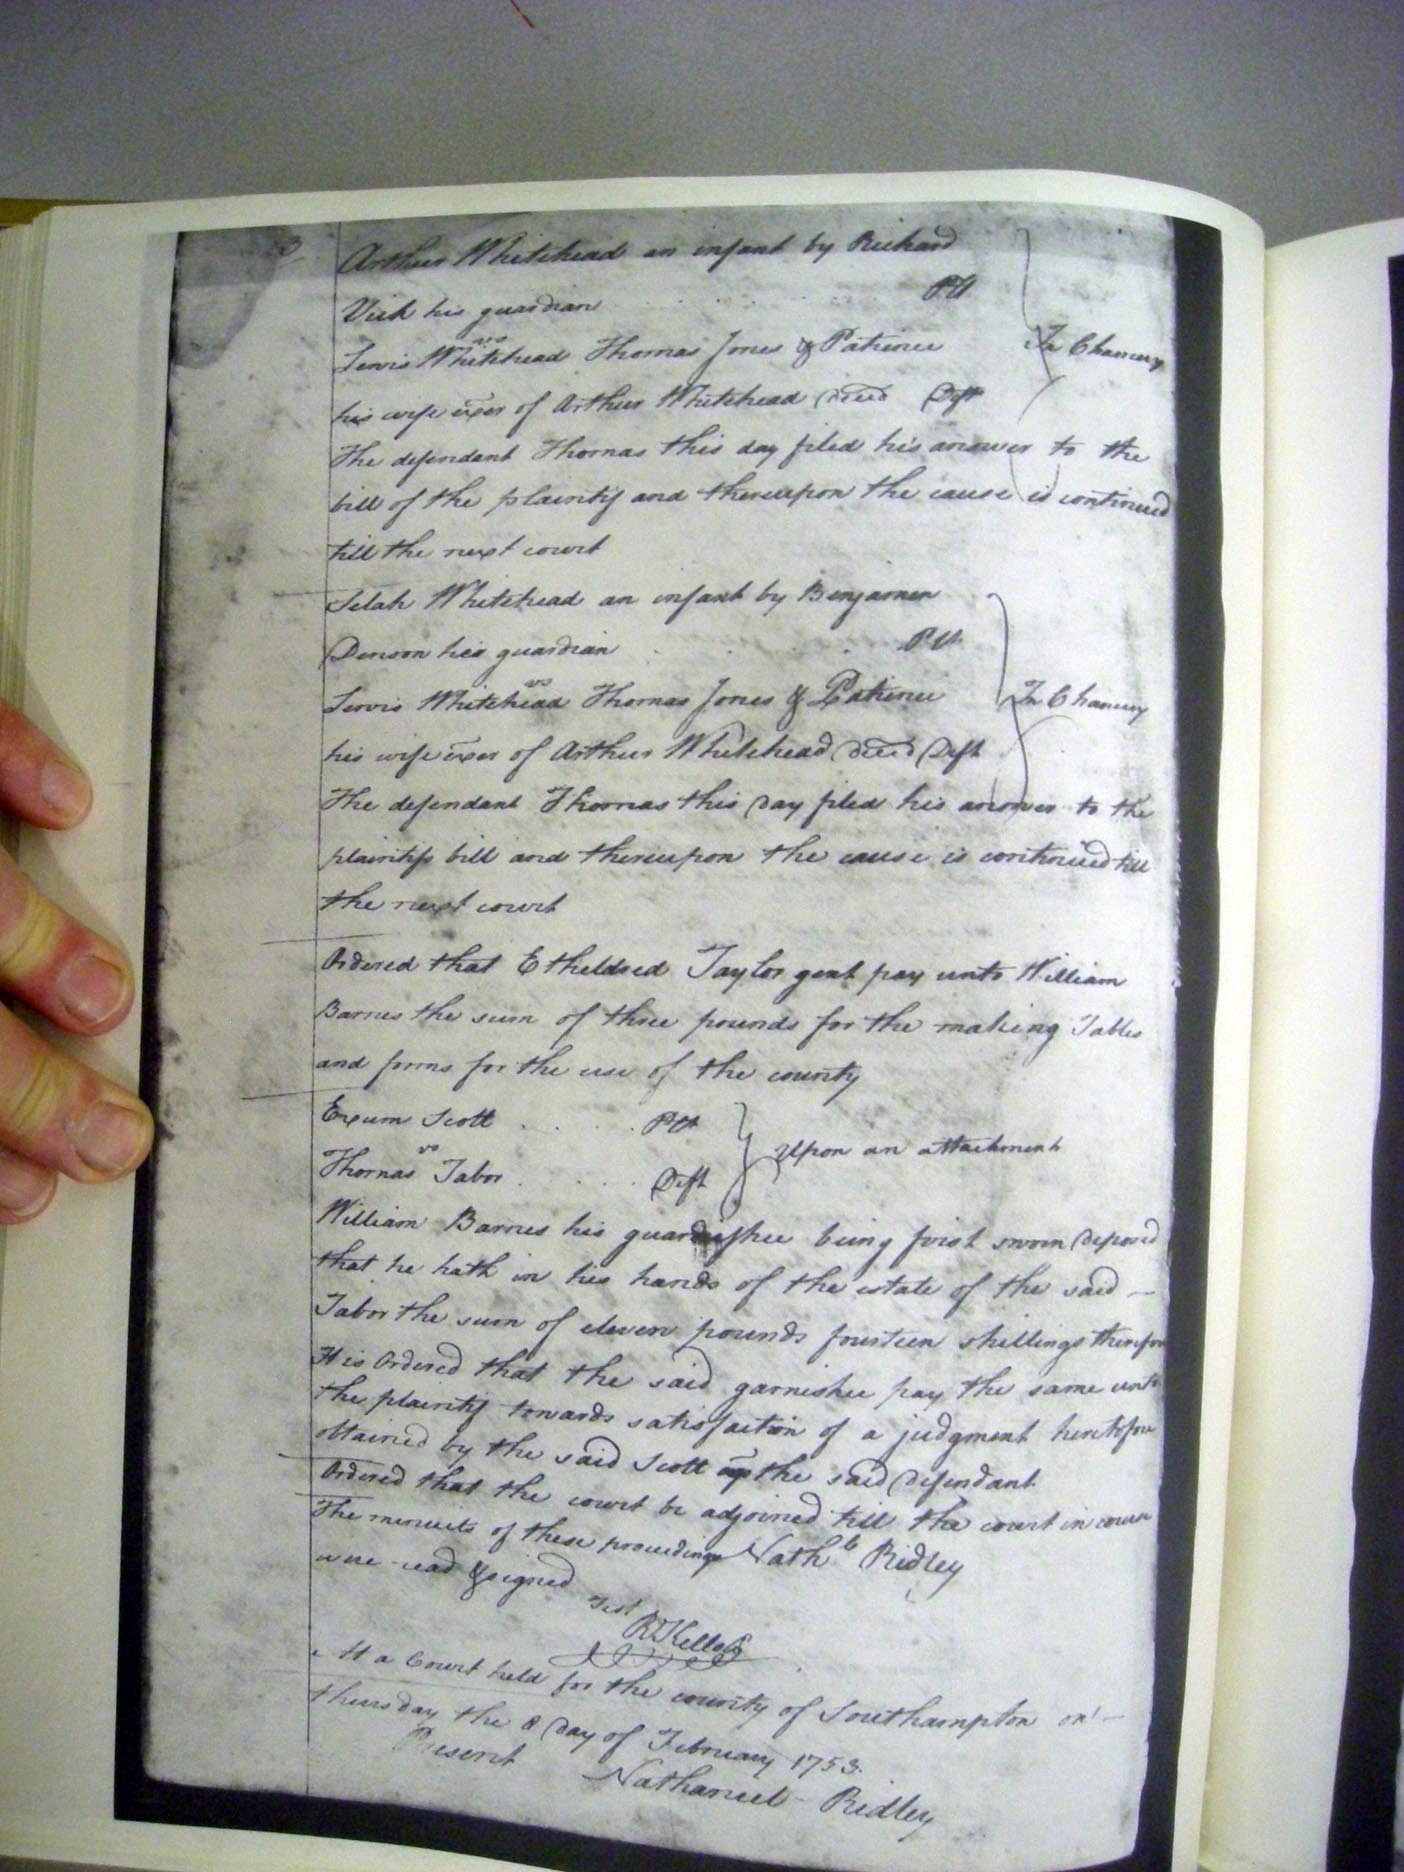 3
Arthur Whitehead an infant by Richard
Vick his guardian . . . . . . . Plt
vs
Lewis Whitehead Thomas Jones & Patience
In Chancery
his wife exer of Arthur Whitehead Deced Deft
The defendant Thomas this day filed his answer to the
bill of the plaintif and thereupon the cause is continued
till the next court
Selah Whitehead an infant by Benjamen
Denson his guardian . . . . Plt
vs
Lewis Whitehead Thomas Jones & Patience
In Chancery
his wife exer of Arthur Whitehead Deced Deft
The defendant Thomas this Day filed his answer to the
plaintifs bill and thereupon the cause is continued till
the next court
Ordered that Etheldred Taylor gent pay unto William
Barnes the sum of three pounds for the making Tables
and forms for the use of the county
Exum Scott . . . . . Plt
vs
Upon an attachment
Thomas Tabor . . . . . Deft
William Barnes his guarnishee being first sworn Deposed
that he hath in his hands of the estate of the said —
Tabor the sum of eleven pounds fourteen shillings therefore
It is Ordered that the said garnishee pay the same unto
the plaintif towards satisfaction of a judgment heretofore
obtained by the said Scott agt the said Defendant
Ordered that the court be adjoined till the court in course
The minuets of these proceedings Nathl Ridley
were read & signed
Test
R Kello
At a Court held for the county of Southampton on —
thursday the 8 Day of February 1753.
Present Nathaniel Ridley